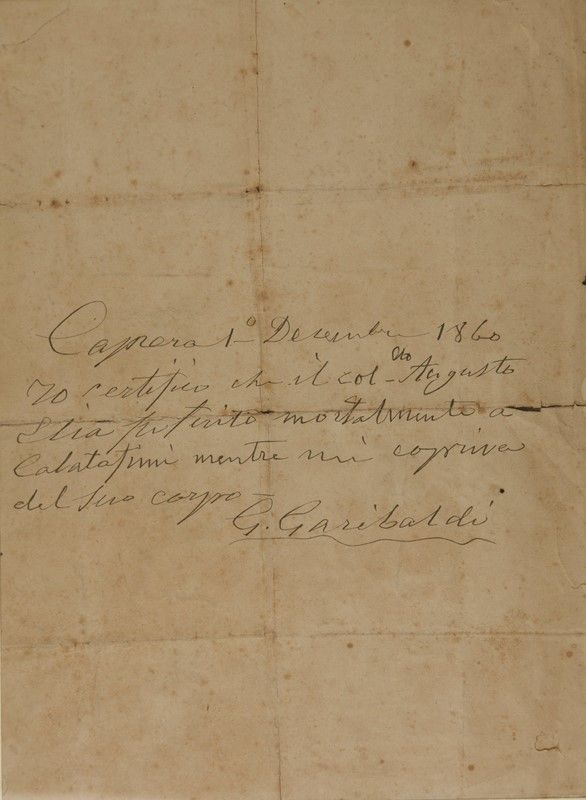 Caprera 1º Decembre 1860
Io certifico che il col.llo Augusto
Elia fu ferito mortalmente a
Calatafimi mentre mi copriva
del suo corpo—
G. Garibaldi